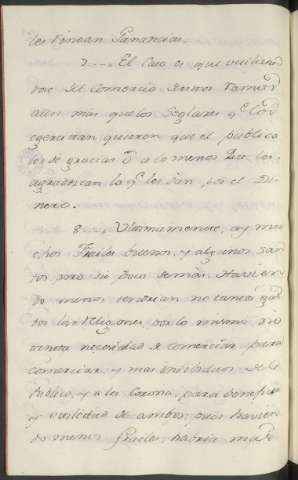 les rindan Ganancias.
7 - - - El Caso es que utilizan
dose del comercio
mas que los Seglares q.e lo
egercitan, quieren que el publico
les de gracias ó a lo menos que les
agradescan la q.e les dan por el Di-
nero.
8. Ultimamente, ay mu
chos Frailes buenos, y algunos san-
tos pero si poco demás. Havien
do menos tendrian no tantos gas
tos las Religiones, por lo mismo no
necesidad de comerciar para
comerciar, y mas individuos el
Publico, y a la Corona, para beneficio
y utilidad de ambos; pues havien
do menos frailes, habria mas